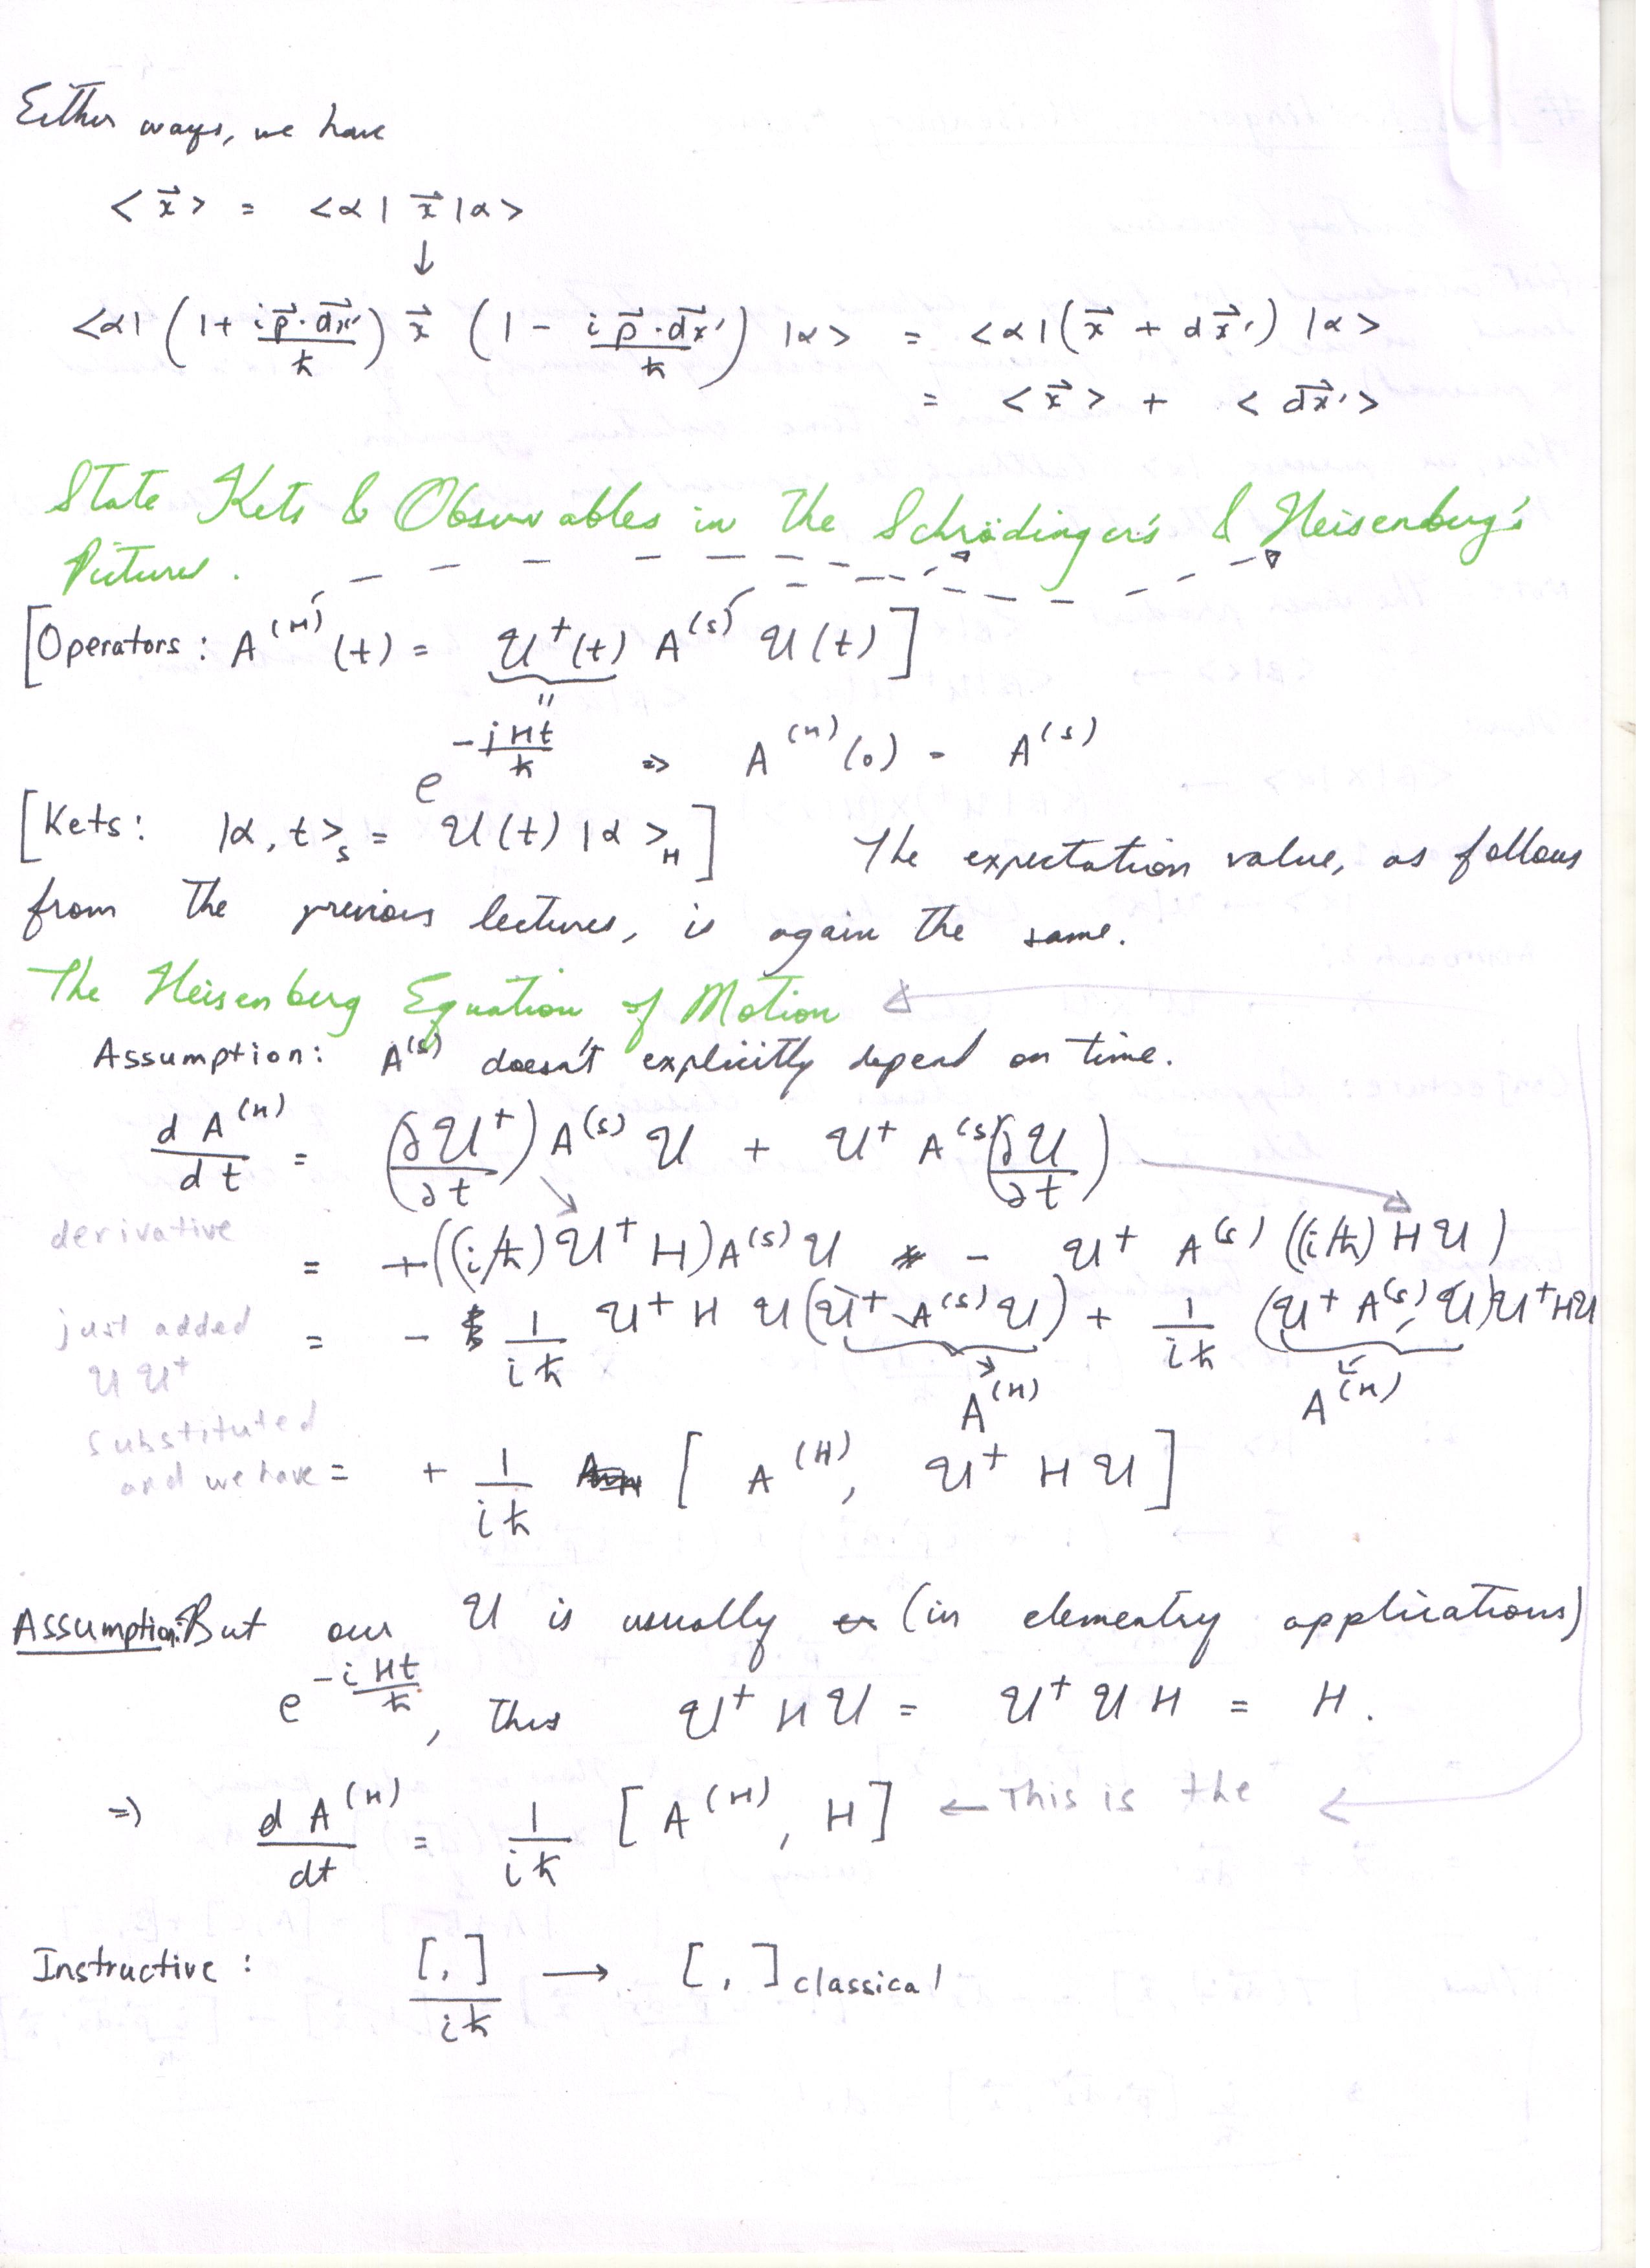 Either ways, we have
< x⃗ > = <α| x⃗ |α>
↓
<α| (1 + i p⃗·dx⃗′/ħ) x⃗ (1 - i p⃗·dx⃗′/ħ) |α> = <α|(x⃗ + dx⃗′) |α>
= < x⃗ > + < dx⃗′>
State Kets & Observables in the Schrödinger's & Heisenberg's
Pictures.
[Operators: A^(H)(t) = 𝒰†(t) A^(S) 𝒰(t)]
"
e^(-iHt/ħ) ⇒ A^(H)(0) = A^(S)
[Kets: |α, t>_S = 𝒰(t) |α>_H] The expectation value, as follows
from the previous lectures, is again the same.
The Heisenberg Equation of Motion
Assumption: A^(S) doesn't explicitly depend on time.
dA^(H)/dt = (∂𝒰†/∂t) A^(S) 𝒰 + 𝒰† A^(S) (∂𝒰/∂t)
derivative = +((i/ħ) 𝒰† H) A^(S) 𝒰 - 𝒰† A^(S) ((i/ħ) H 𝒰)
just added 𝒰 𝒰† = - 1/iħ 𝒰† H 𝒰 (𝒰† A^(S) 𝒰) + 1/iħ (𝒰† A^(S) 𝒰) 𝒰† H 𝒰
A^(H) A^(H)
substituted
and we have = + 1/iħ [ A^(H), 𝒰† H 𝒰 ]
Assumption: But our 𝒰 is usually (in elementry applications)
e^(-iHt/ħ), thus 𝒰† H 𝒰 = 𝒰† 𝒰 H = H.
⇒ dA^(H)/dt = 1/iħ [A^(H), H] ← This is the
Instructive: [,]/iħ → [,]classical